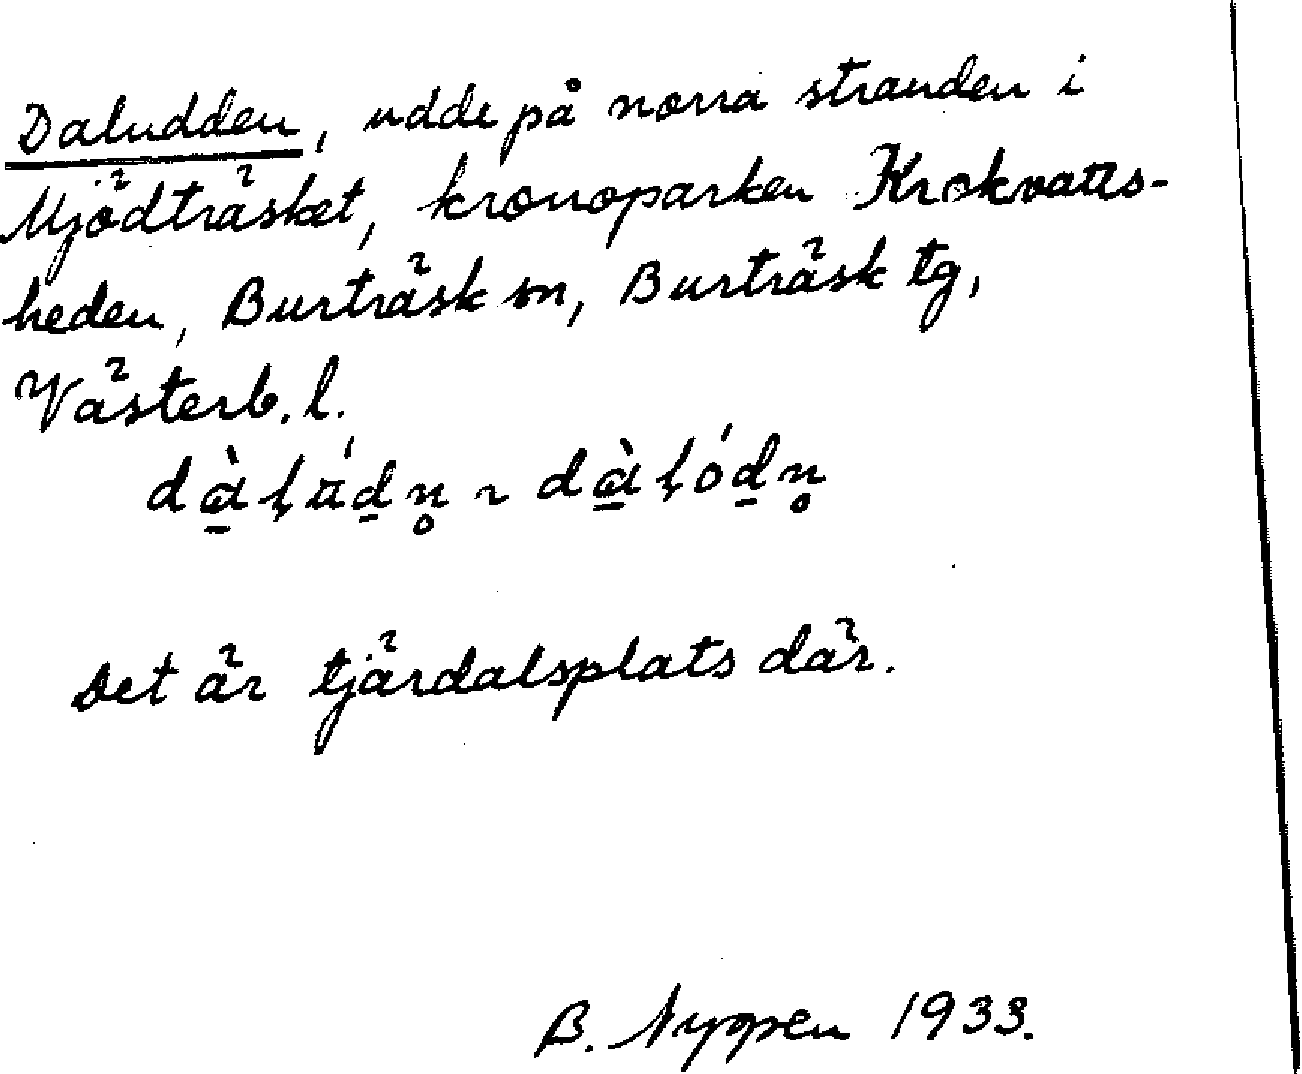 Daludden, udde på norra stranden i
Mjödträsket, kronoparken Krokvatts-
heden, Burträsk sn, Burträsk tg,
Västerb. l.
dà̱ḷúḏn̥ ~ dà̱ḷóḏn̥
Det är tjärdalsplats där.
B. Nygren 1933.